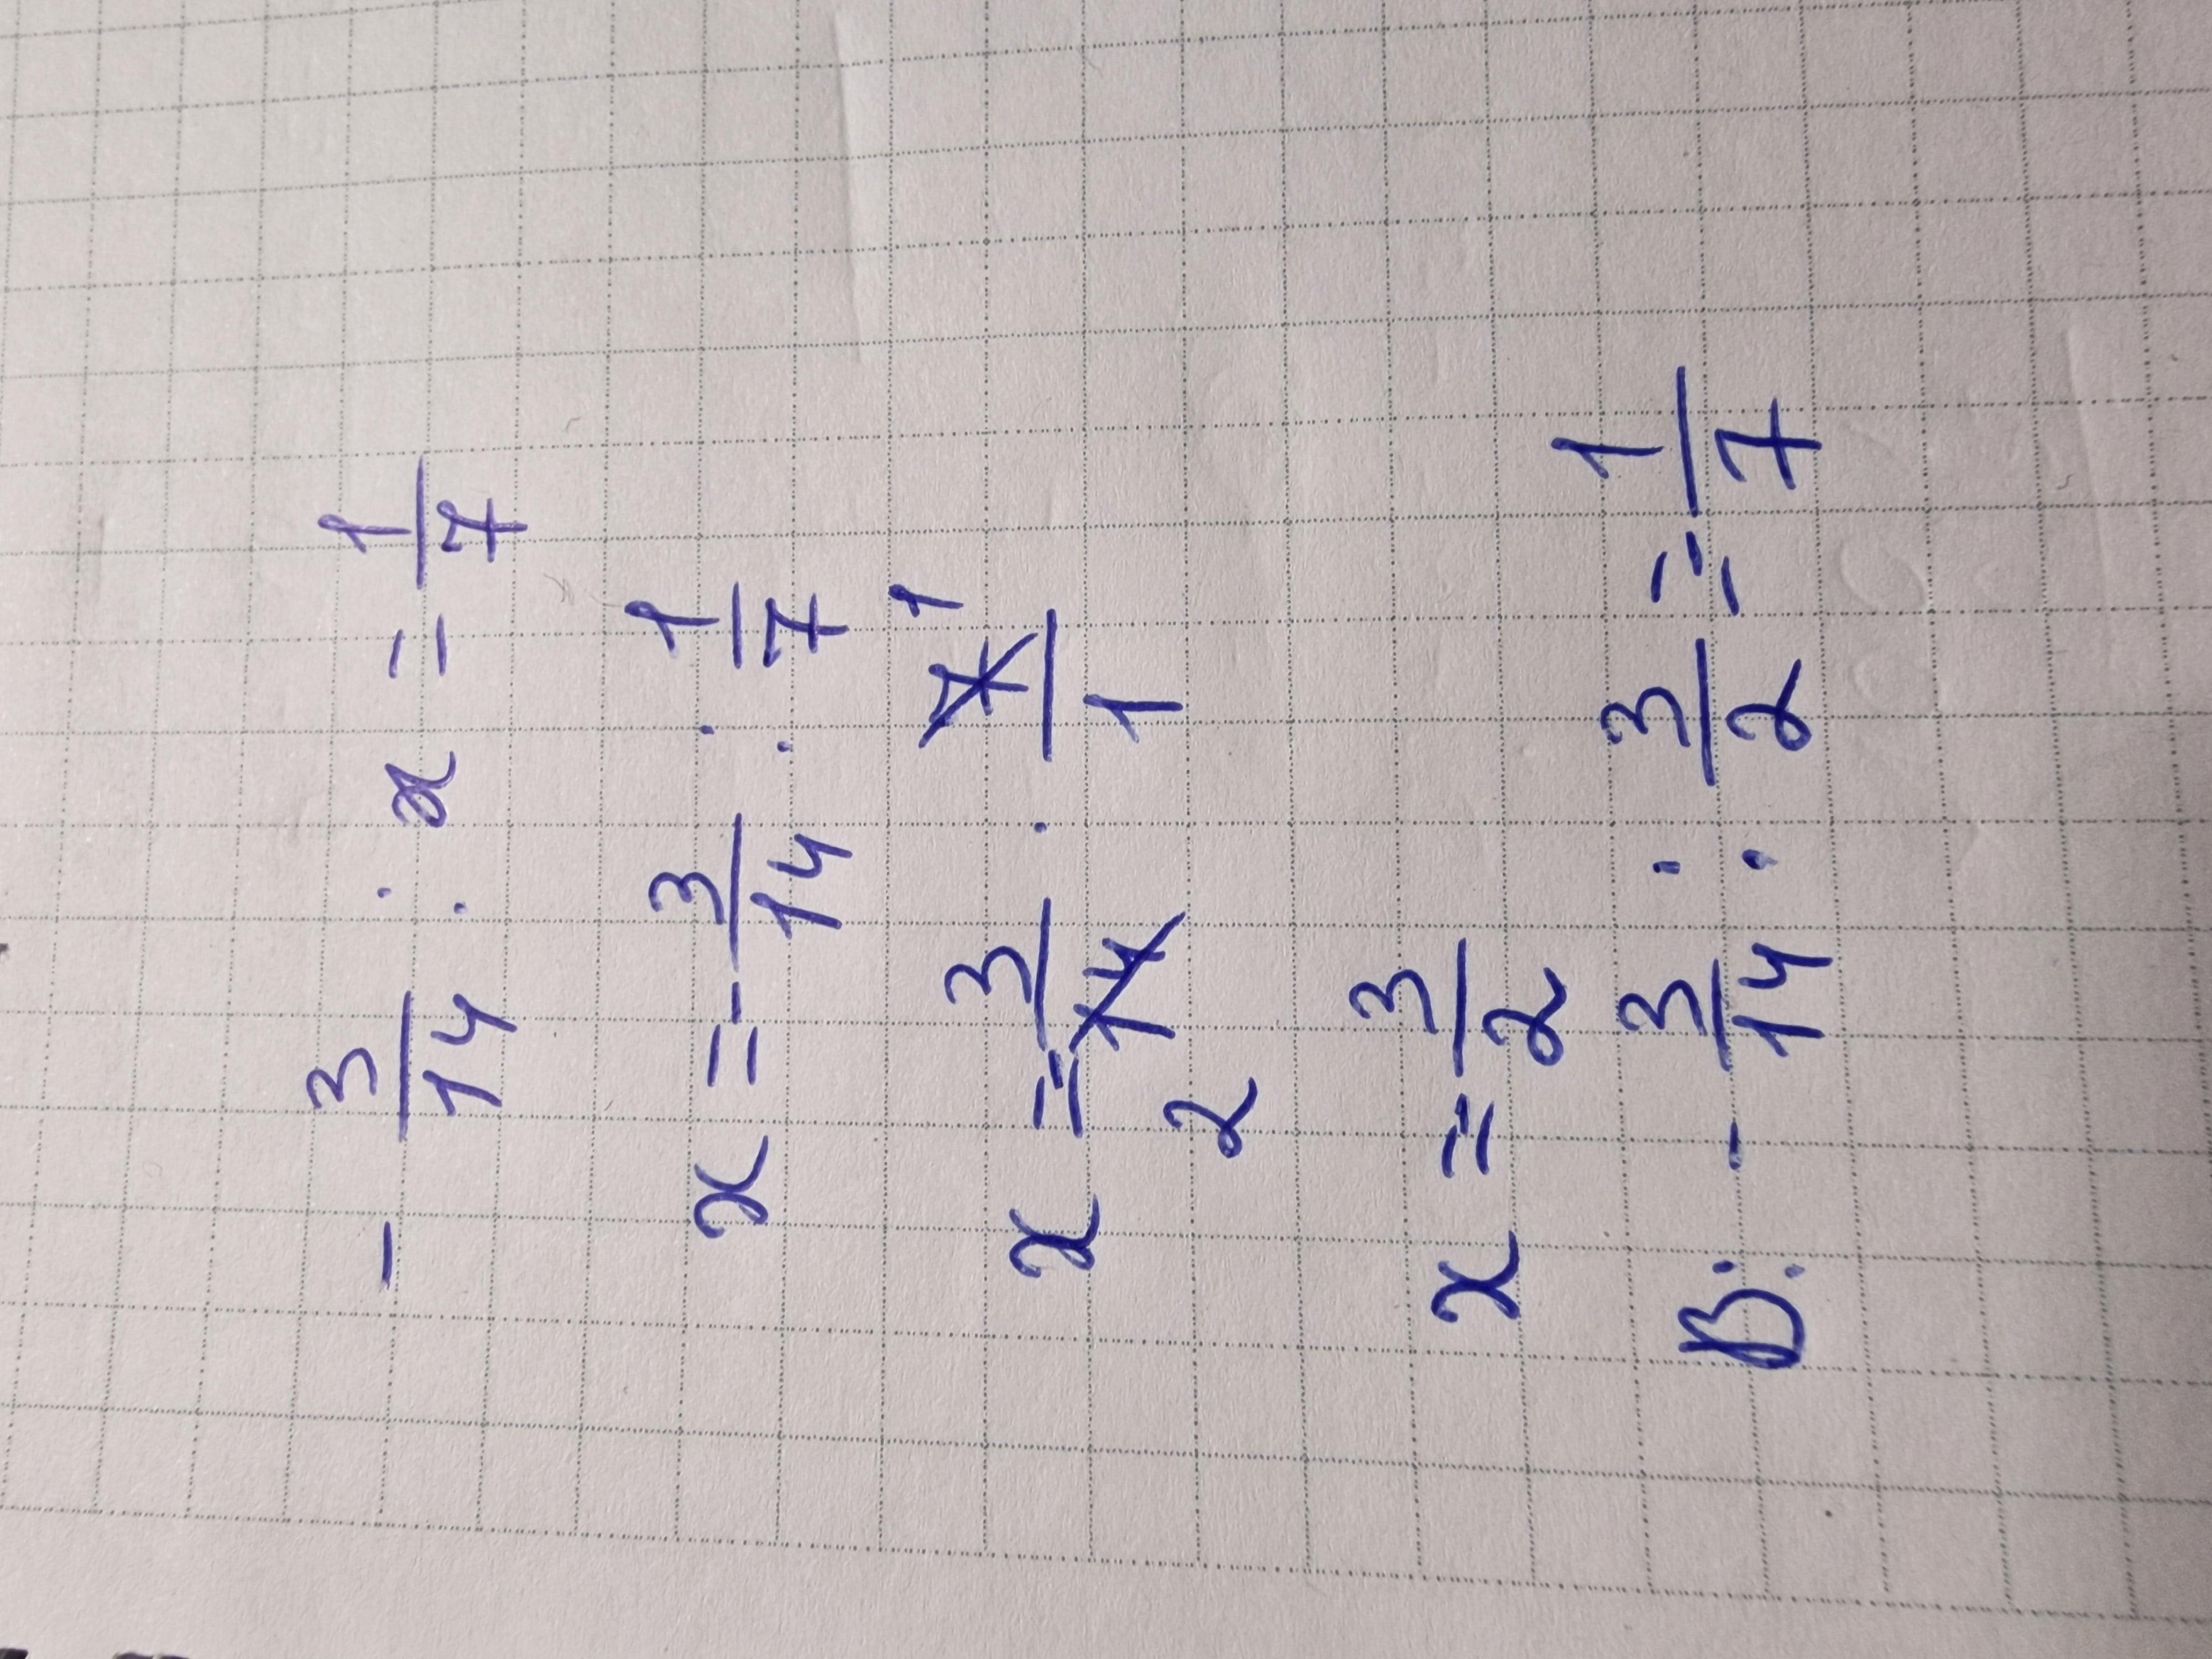 - 3/14 : x = 1/7
x = 3/14 : 1/7
x = 3/14 · 7/1 1
2
x = 3/2
B: - 3/14 : 3/2 = 1/7